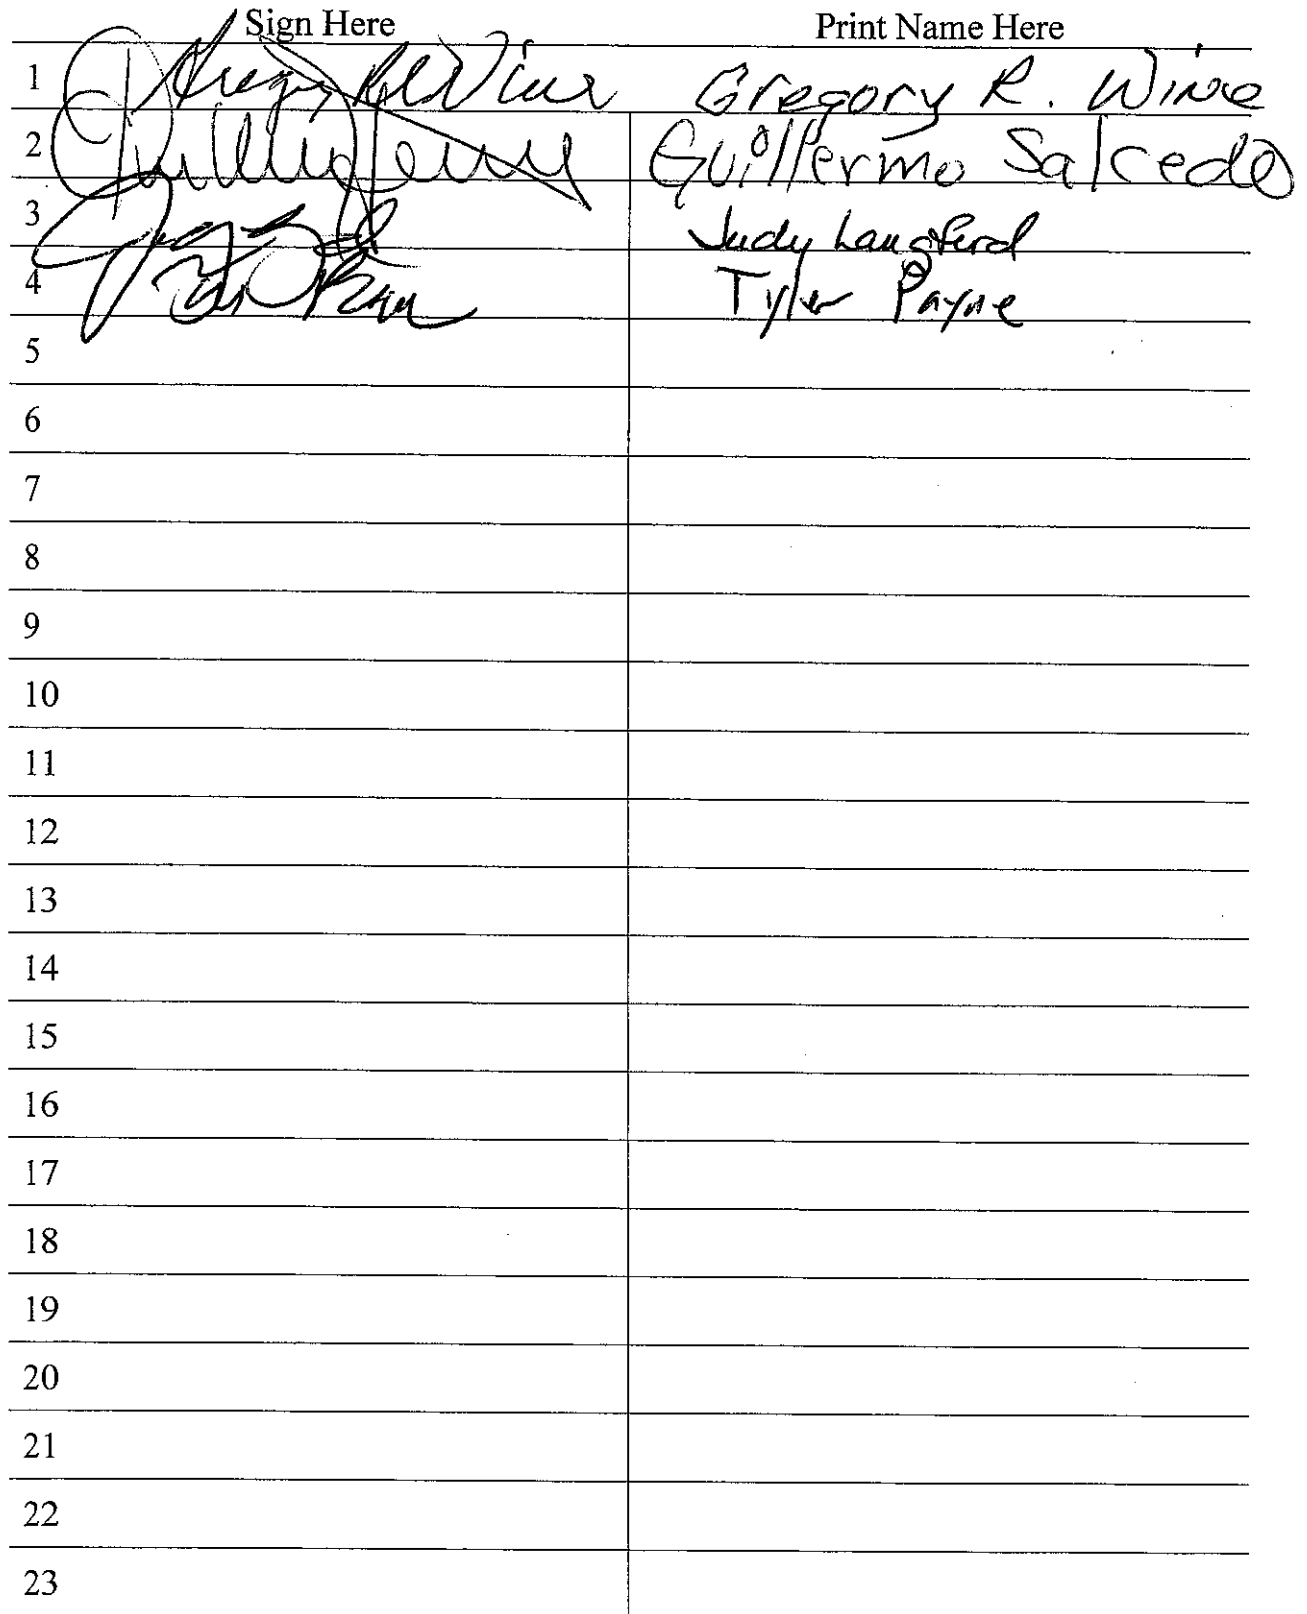 Sign Here Print Name Here
1 Gregory R. Wine
2 Guillermo Salcedo
3 Judy Langford
4 Tyler Payne
5
6
7
8
9
10
11
12
13
14
15
16
17
18
19
20
21
22
23